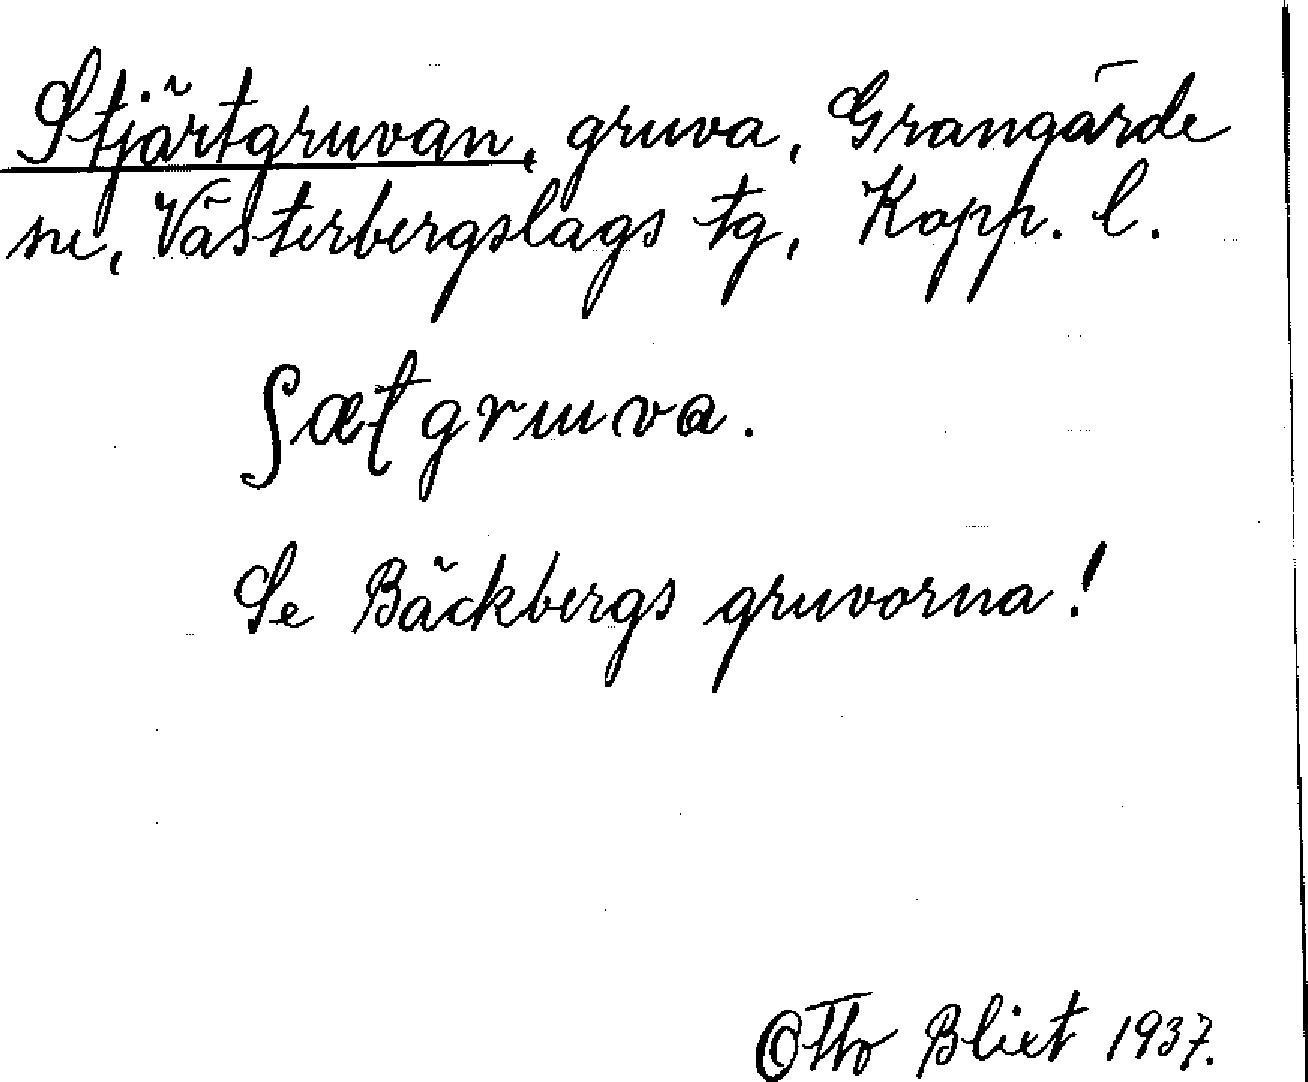 Stjärtgruvan, gruva, Grangärde
sn, Västerbergslags tg, Kopp. l.
ʃætgruva.
Se Bäckbergs gruvorna!
©Thr Blixt 1937.